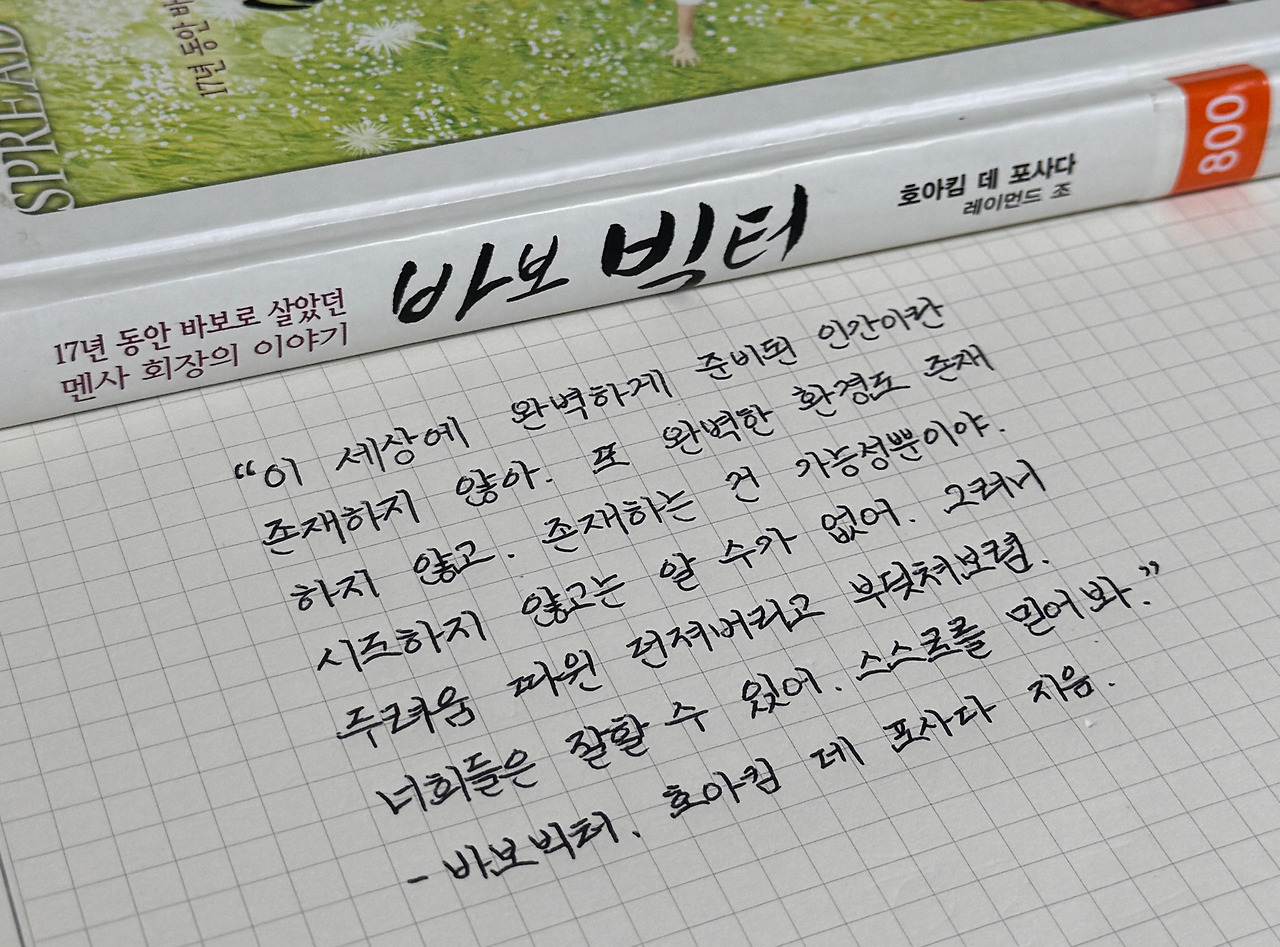 SPREAD
17년 동안 바
800
호아킴 데 포사다
레이먼드 조
바보 빅터
17년 동안 바보로 살았던
멘사 회장의 이야기
“이 세상에 완벽하게 준비된 인간이란
존재하지 않아. 또 완벽한 환경도 존재
하지 않고. 존재하는 건 가능성뿐이야.
시도하지 않고는 알 수가 없어. 그러니
두려움 따윈 던져버리고 부딪쳐보렴.
너희들은 잘할 수 있어. 스스로를 믿어봐.”
- 바보빅터. 호아킴 데 포사다 지음.